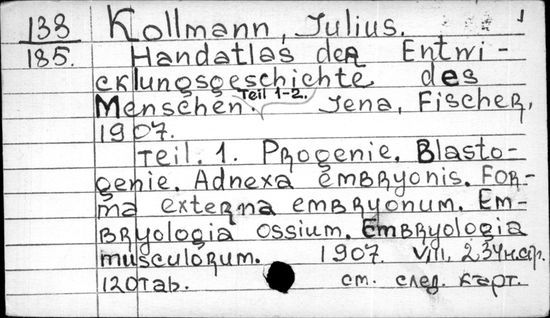 138 Kollmann, Julius.
185. Handatlas der Entwi-
cklungsgeschichte des
Menschen. Teil 1-2. Jena, Fischer,
1907.
Teil. 1. Progenie. Blasto-
genie. Adnexa embryonis. For-
ma externa embryonum. Em-
bryologia ossium. Embryologia
musculorum. 1907. VIII, 234 н.стр.
120 таб. см. след. карт.